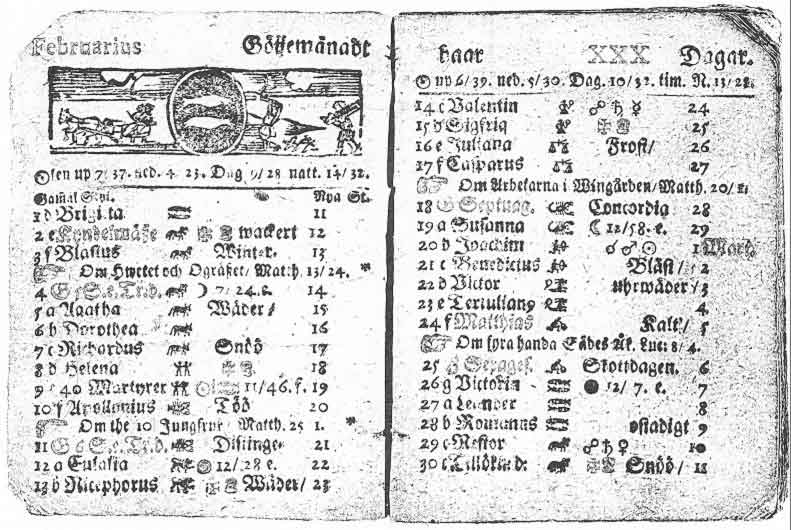 Februarius Götjemånadt
Solen up 7/37. ned. 4 23. Dag 9/28 natt. 14/32.
Gamal Styl. Nya St.
1 d Brigitta 11
2 e Kyndelmässe wackert 12
3 f Blasius Winter. 13
Om Hwetet och Ogräset/ Matth. 13/24.
4 G 5 S. e. Tr. d. ☽ 7/24. e. 14
5 a Agatha Wäder/ 15
6 b Dorothea 16
7 c Richardus Snöö 17
8 d Helena 18
9 e 40 Martyrer 11/46. f. 19
10 f Apollonius Töö 20
Om the 10 Jungfrur/ Matth. 25 1.
11 G 6 S. e. Tr. d. Distinge 21
12 a Eulalia 12/28 e. 22
13 b Nicephorus Wäder/ 23
haar XXX Dagar.
☉ up 6/39. ned. 5/30. Dag. 10/32. tim. N. 13/28.
14 c Valentin ☍ ♄ ☿ 24
15 d Sigfrid 25
16 e Juliana Frost/ 26
17 f Casparus 27
Om Arbetarna i Wingården/ Matth. 20/1.
18 G Septuag. Concordia 28
19 a Susanna ☾ 12/58. e. 29
20 b Joachim ☌ ♂ ☉ 1 Mart.
21 c Benedictus Bläst/ 2
22 d Victor uhrwäder/ 3
23 e Tertulianq 4
24 f Matthias Kalt/ 5
Om fyra handa Sädes Åk. Luc: 8/4.
25 G Sexages. Skottdagen. 6
26 g Victorin ● 12/7. e. 7
27 a Leander 8
28 b Romanus ostadigt 9
29 c Nestor ☍ ♄ ♀ 10
30 c Snöö/ 11